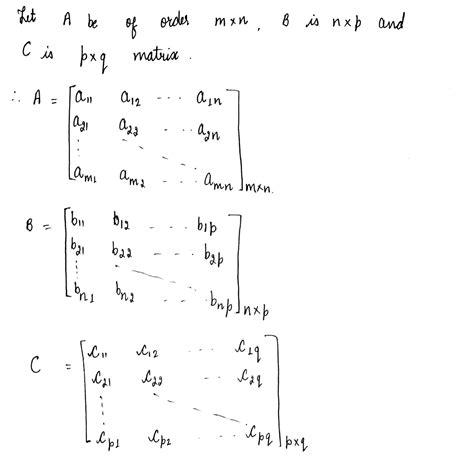 Let A be of order m×n, B is n×p and
C is p×q matrix.
∴ A = [a₁₁ a₁₂ --- a₁ₙ
a₂₁ a₂₂ -- a₂ₙ
⋮
aₘ₁ aₘ₂ --- aₘₙ]m×n.
B = [b₁₁ b₁₂ --- b₁p
b₂₁ b₂₂ --- b₂p
⋮
bₙ₁ bₙ₂ --- bₙp]n×p
C = [c₁₁ c₁₂ --- c₁q
c₂₁ c₂₂ -- c₂q
⋮
cp₁ cp₂ --- cpq]p×q